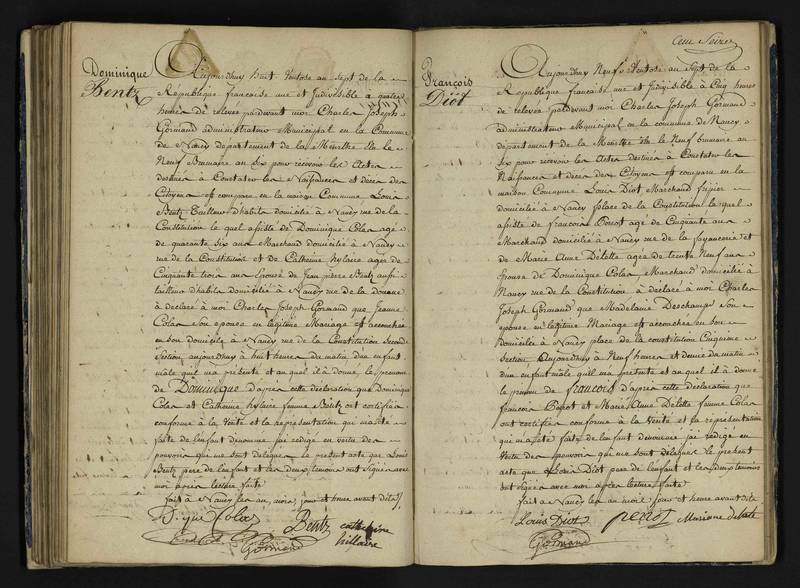 Dominique
Bentz
Aujourdhuy huit Ventose an Sept de la
Republique francaise une et Indivisible à quatre
heures de relevée pardevant moi Charles Joseph
Gormand administrateur Municipal en la Commune
de Nancy departement de la Meurthe élu le
Neuf Brumaire an six pour recevoir les Actes
destinés à Constater les Naissances et décès des
Citoyens est comparu en la maison Commune Louis
Bentz Tailleur d'habits domicilié à Nancy rue de la
Constitution le quel assisté de Dominique Colas agé
de quarante six ans Marchand domicilié à Nancy
rue de la Constitution et de Catherine hylaire agée de
Cinquante trois ans Epouse de Jean pierre Bentz aussi
tailleur d'habits domiciliée à Nancy rue de la douane
à déclaré à moi Charles Joseph Gormand que Jeanne
Colas son epouse en legitime Mariage est accouchée
en son domicile à Nancy rue de la Constitution Seconde
Section aujourdhuy à huit heures du matin d'un enfant
mâle qu'il m'a présenté et auquel il à donné le prenom
de Dominique d'après cette déclaration que Dominique
Colas et Catherine hylaire femme Bentz ont certifiée
conforme à la Vérité et la représentation qui m'a été
faite de l'enfant dénommé jai rédigé en vertu des
pouvoirs qui me sont délégués le présent acte que Louis
Bentz pere de l'enfant et les deux temoins ont signés avec
moi après lecture faite
fait à Nancy les an, mois, jour et heure avant dits
D.que Colas
Bentz
catherine
hillaire
Gormand
Cent Seize
François
Diot
Aujourdhuy Neuf Ventose an Sept de la
Republique francaise une et Indivisible à Cinq heures
de relevée pardevant moi Charles Joseph Gormand
administrateur Municipal en la commune de Nancy
departement de la Meurthe élu le Neuf brumaire an
Six pour recevoir les Actes destinés à Constater les
Naissances et décès des Citoyens est comparu en la
maison Commune Louis Diot Marchand fripier
domicilié à Nancy place de la Constitution le quel
assisté de francois Perrot agé de Cinquante ans
Marchand domicilié à Nancy rue de la fayancerie et
de Marie Anne Delotte agée de trente Neuf ans
épouse de Dominique Colas Marchand domicilié à
Nancy rue de la Constitution à déclaré à moi Charles
Joseph Gormand que Madelaine Deschamps son
epouse en legitime Mariage est accouchée en son
domicile à Nancy place de la constitution Cinquieme
Section Aujourdhuy à Neuf heures et demie du matin
d'un enfant male qu'il m'a présenté et auquel il à donné
le prenom de francois d'après cette déclaration que
francois Perrot et Marie Anne Delotte femme Colas
ont certifiée conforme à la Verité et la représentation
qui m'a été faite de l'enfant dénommé jai rédigé en
Vertu des pouvoirs qui me sont délégués le présent
acte que Louis Diot pere de l'enfant et les deux temoins
ont signés avec moi après lecture faite
fait à Nancy les an mois Jour et heure avant dits
Louis Diot
perrot
Marianne delote
Gormand